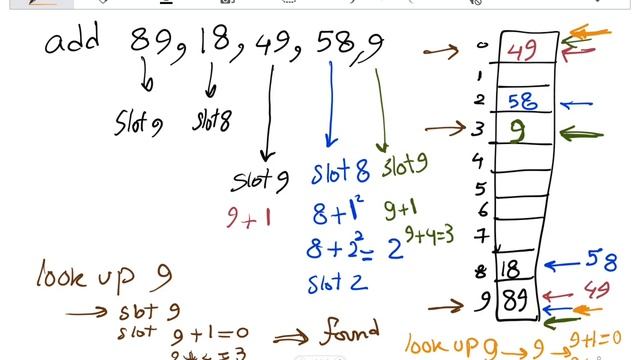 add 89, 18, 49, 58, 9
slot 9 slot 8
slot 9 slot 8 slot 9
9+1 8+1² 9+1
8+2²=2 9+4=3
slot 2
look up 9
→ slot 9
slot 9+1=0 ⇒ found
0 49
1
2 58
3 9
4
5
6
7
8 18 ← 58
9 89 ← 49
look up 9 → 9 → 9+1=0